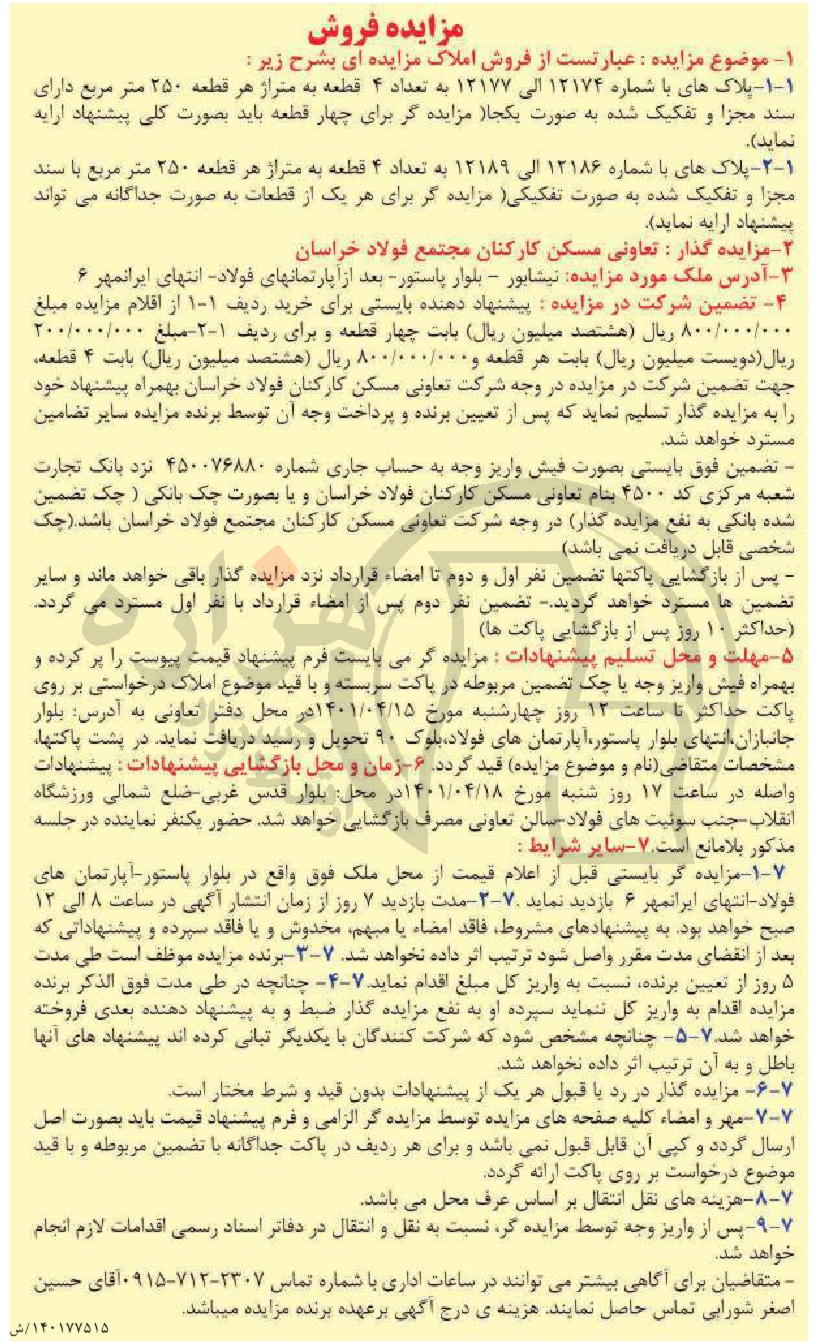 مزایده فروش
۱- موضوع مزایده : عبارتست از فروش املاک مزایده ای بشرح زیر :
۱-۱-پلاک های با شماره ۱۲۱۷۴ الی ۱۲۱۷۷ به تعداد ۴ قطعه به متراژ هر قطعه ۲۵۰ متر مربع دارای
سند مجزا و تفکیک شده به صورت یکجا( مزایده گر برای چهار قطعه باید بصورت کلی پیشنهاد ارایه
نماید).
۲-۱-پلاک های با شماره ۱۲۱۸۶ الی ۱۲۱۸۹ به تعداد ۴ قطعه به متراژ هر قطعه ۲۵۰ متر مربع با سند
مجزا و تفکیک شده به صورت تفکیکی( مزایده گر برای هر یک از قطعات به صورت جداگانه می تواند
پیشنهاد ارایه نماید).
۲-مزایده گذار : تعاونی مسکن کارکنان مجتمع فولاد خراسان
۳-آدرس ملک مورد مزایده: نیشابور – بلوار پاستور- بعد ازآپارتمانهای فولاد- انتهای ایرانمهر ۶
۴- تضمین شرکت در مزایده : پیشنهاد دهنده بایستی برای خرید ردیف ۱-۱ از اقلام مزایده مبلغ
۸۰۰/۰۰۰/۰۰۰ ریال (هشتصد میلیون ریال) بابت چهار قطعه و برای ردیف ۱-۲-مبلغ ۲۰۰/۰۰۰/۰۰۰
ریال(دویست میلیون ریال) بابت هر قطعه و۸۰۰/۰۰۰/۰۰۰ ریال (هشتصد میلیون ریال) بابت ۴ قطعه،
جهت تضمین شرکت در مزایده در وجه شرکت تعاونی مسکن کارکنان فولاد خراسان بهمراه پیشنهاد خود
را به مزایده گذار تسلیم نماید که پس از تعیین برنده و پرداخت وجه آن توسط برنده مزایده سایر تضامین
مسترد خواهد شد.
- تضمین فوق بایستی بصورت فیش واریز وجه به حساب جاری شماره ۴۵۰۰۷۶۸۸۰ نزد بانک تجارت
شعبه مرکزی کد ۴۵۰۰ بنام تعاونی مسکن کارکنان فولاد خراسان و یا بصورت چک بانکی ( چک تضمین
شده بانکی به نفع مزایده گذار) در وجه شرکت تعاونی مسکن کارکنان مجتمع فولاد خراسان باشد.(چک
شخصی قابل دریافت نمی باشد)
- پس از بازگشایی پاکتها تضمین نفر اول و دوم تا امضاء قرارداد نزد مزایده گذار باقی خواهد ماند و سایر
تضمین ها مسترد خواهد گردید.- تضمین نفر دوم پس از امضاء قرارداد با نفر اول مسترد می گردد.
(حداکثر ۱۰ روز پس از بازگشایی پاکت ها)
۵-مهلت و محل تسلیم پیشنهادات : مزایده گر می بایست فرم پیشنهاد قیمت پیوست را پر کرده و
بهمراه فیش واریز وجه یا چک تضمین مربوطه در پاکت سربسته و با قید موضوع املاک درخواستی بر روی
پاکت حداکثر تا ساعت ۱۲ روز چهارشنبه مورخ ۱۴۰۱/۰۴/۱۵در محل دفتر تعاونی به آدرس: بلوار
جانبازان،انتهای بلوار پاستور،آپارتمان های فولاد،بلوک ۹۰ تحویل و رسید دریافت نماید. در پشت پاکتها،
مشخصات متقاضی(نام و موضوع مزایده) قید گردد. ۶-زمان و محل بازگشایی پیشنهادات : پیشنهادات
واصله در ساعت ۱۷ روز شنبه مورخ ۱۴۰۱/۰۴/۱۸در محل: بلوار قدس غربی-ضلع شمالی ورزشگاه
انقلاب-جنب سوئیت های فولاد-سالن تعاونی مصرف بازگشایی خواهد شد. حضور یکنفر نماینده در جلسه
مذکور بلامانع است.۷-سایر شرایط :
۷-۱-مزایده گر بایستی قبل از اعلام قیمت از محل ملک فوق واقع در بلوار پاستور-آپارتمان های
فولاد-انتهای ایرانمهر ۶ بازدید نماید .۷-۲-مدت بازدید ۷ روز از زمان انتشار آگهی در ساعت ۸ الی ۱۲
صبح خواهد بود. به پیشنهادهای مشروط، فاقد امضاء یا مبهم، مخدوش و یا فاقد سپرده و پیشنهاداتی که
بعد از انقضای مدت مقرر واصل شود ترتیب اثر داده نخواهد شد. ۷-۳-برنده مزایده موظف است طی مدت
۵ روز از تعیین برنده، نسبت به واریز کل مبلغ اقدام نماید.۷-۴- چنانچه در طی مدت فوق الذکر برنده
مزایده اقدام به واریز کل ننماید سپرده او به نفع مزایده گذار ضبط و به پیشنهاد دهنده بعدی فروخته
خواهد شد.۷-۵- چنانچه مشخص شود که شرکت کنندگان با یکدیگر تبانی کرده اند پیشنهاد های آنها
باطل و به آن ترتیب اثر داده نخواهد شد.
۷-۶- مزایده گذار در رد یا قبول هر یک از پیشنهادات بدون قید و شرط مختار است.
۷-۷-مهر و امضاء کلیه صفحه های مزایده توسط مزایده گر الزامی و فرم پیشنهاد قیمت باید بصورت اصل
ارسال گردد و کپی آن قابل قبول نمی باشد و برای هر ردیف در پاکت جداگانه با تضمین مربوطه و با قید
موضوع درخواست بر روی پاکت ارائه گردد.
۷-۸-هزینه های نقل انتقال بر اساس عرف محل می باشد.
۷-۹-پس از واریز وجه توسط مزایده گر، نسبت به نقل و انتقال در دفاتر اسناد رسمی اقدامات لازم انجام
خواهد شد.
- متقاضیان برای آگاهی بیشتر می توانند در ساعات اداری با شماره تماس ۲۳۰۷-۷۱۲-۰۹۱۵آقای حسین
اصغر شورایی تماس حاصل نمایند. هزینه ی درج آگهی برعهده برنده مزایده میباشد.
۱۴۰۱۷۷۵۱۵/ش
هزاره